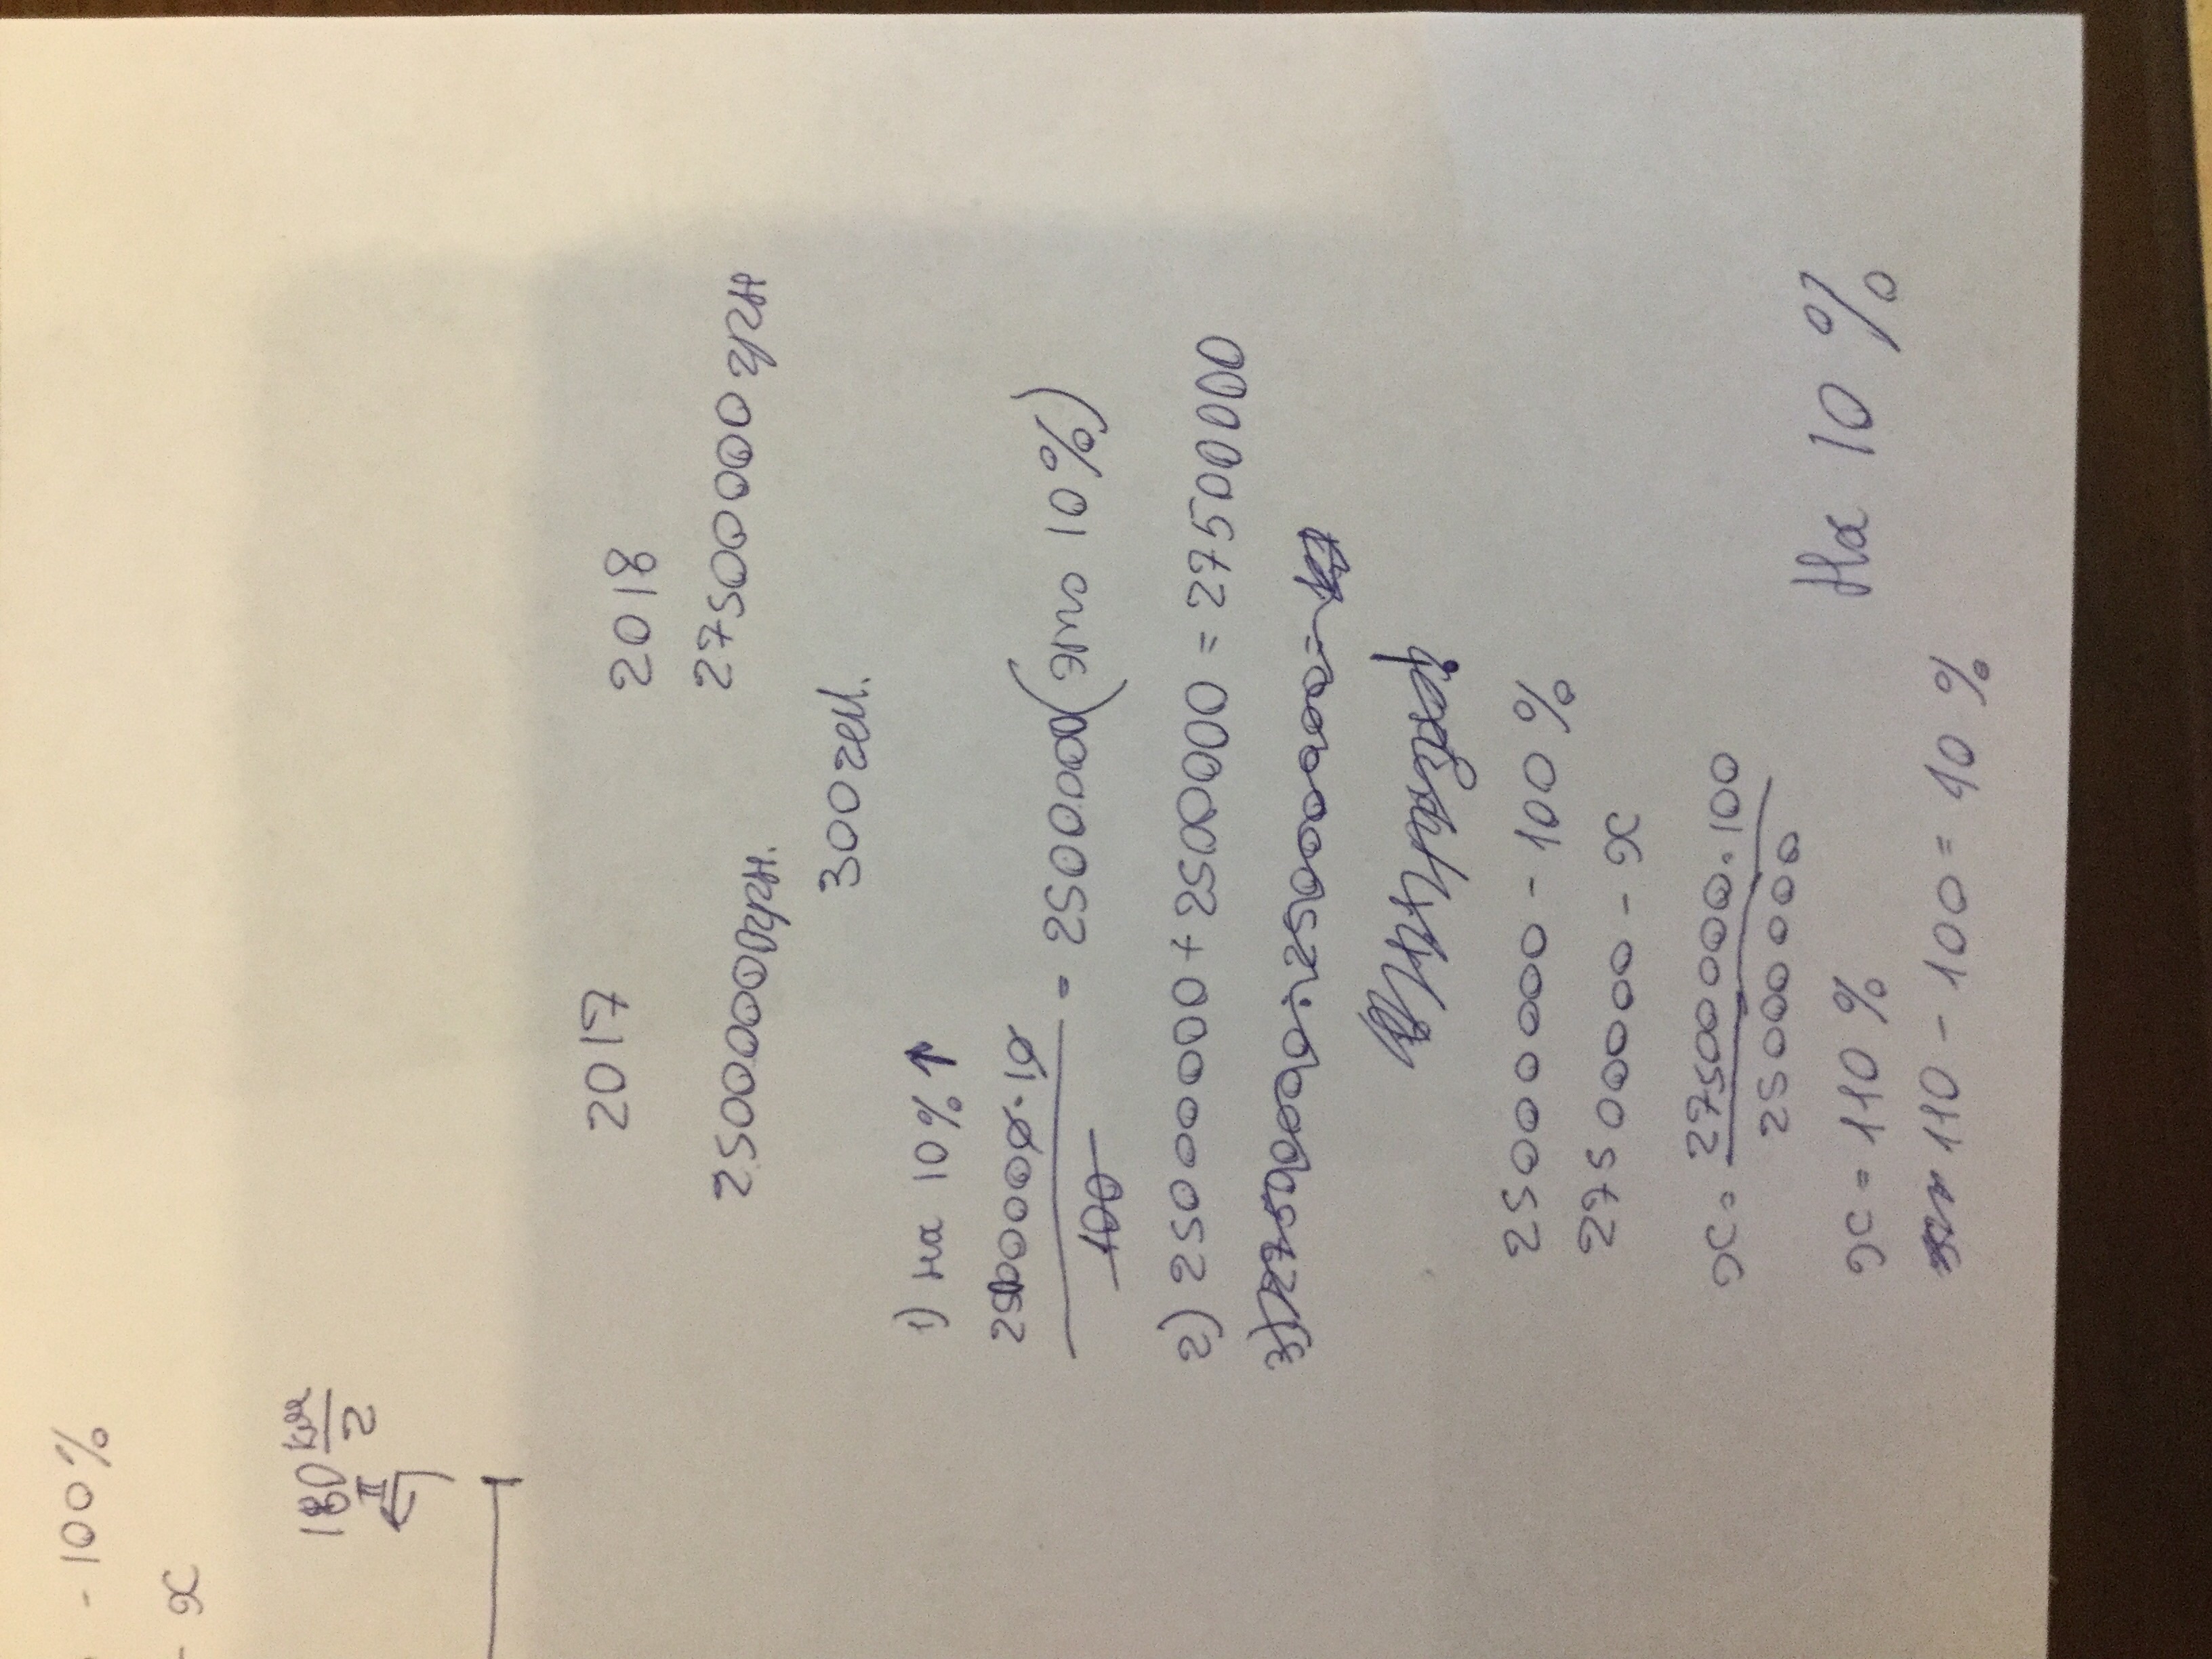 - 100%
- x
180 км/2
II
2017 2018
25000000грн. 27500000 грн
300 чел.
1) на 10% ↑
25000000·10/100 = 2500000 (это 10%)
2) 25000000 + 2500000 = 27500000
25000000 - 100%
27500000 - x
x = 27500000·100/25000000
x = 110 %
110 - 100 = 10 %
На 10 %